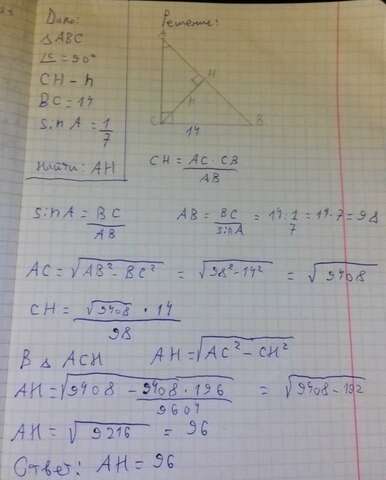 Дано:
Решение:
△ABC
∠C = 90°
CH - h
BC = 14
sin A = 1/7
Найти: AH
A
H
h
C
B
14
CH = AC · CB / AB
sin A = BC / AB
AB = BC / sin A = 14 : 1/7 = 14 · 7 = 98
AC = √(AB² - BC²) = √(98² - 14²) = √9408
CH = √9408 · 14 / 98
В △ ACH AH = √(AC² - CH²)
AH = √(9408 - 9408 · 196 / 9604) = √(9408 - 192
AH = √9216 = 96
Ответ: AH = 96